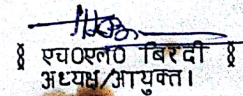 एच0एल0 बिरदी
अध्यक्ष/आयुक्त।